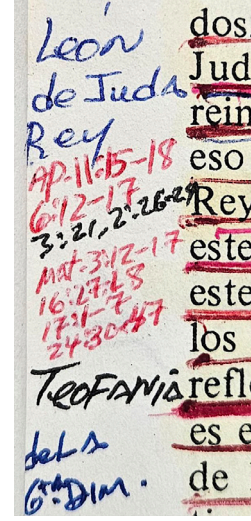 León
de Juda
Rey
Ap-11:15-18
6:12-17
3:21, 2:26-29
Mat-3:12-17
16:27-28
17:1-7
24:30
TEOFANIA
de LA
6ta DIM.
dos
Jud
rein
eso
Rey
este
este
los
refl
es e
de